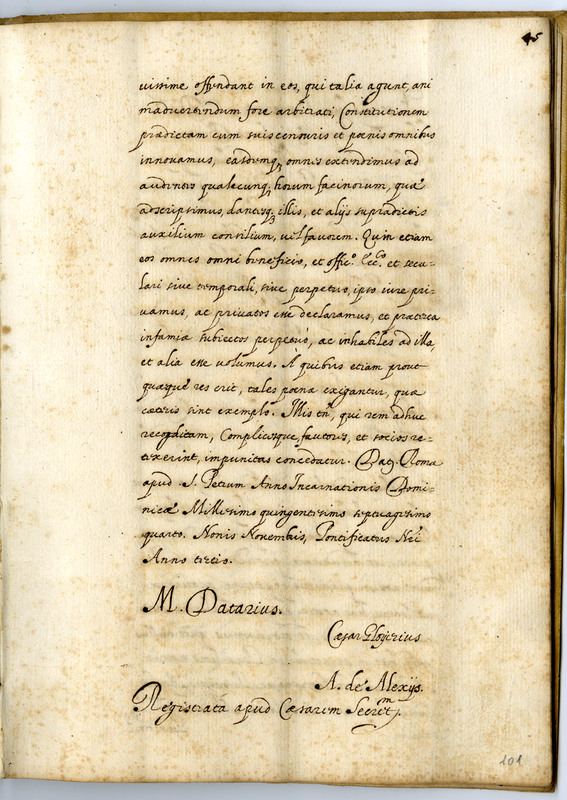 45
uissime offendant in eos, qui talia agunt, ani
maduertendum fore arbitrati, Constitutionem
prædictam cum suis censuris et pœnis omnibus
innouamus, easdemq, omnes extendimus ad
audentes qualecunq, horum facinorum, quæ
adscripsimus, dantesq, illis, et alijs supradictis
auxilium consilium, uel fauorem. Quin etiam
eos omnes omni beneficio, et offic.º Ecc.co et secu-
lari siue temporali, siue perpetuo, ipso iure pri-
uamus, ac priuatos esse declaramus, et præterea
infamiæ subiectos perpetuò, ac inhabiles ad illa,
et alia esse uolumus. A quibus etiam prout
quæque res erit, tales pœnæ exigantur, quæ
cæteris sint exemplo. Illis tñ, qui rem adhuc
reconditam, Complicesque, fautores, et socios re-
texerint, impunitas concedatur. Dat. Romæ
apud S. Petrum Anno Incarnationis Domi-
nicæ Millesimo quingentesimo septuagesimo
quarto. Nonis Nouembris, Pontificatus Nri
Anno tertio.
M. Datarius.
Cæsar Glorierius
A. de Alexijs.
Registrata apud Cæsarem Secret.m
101